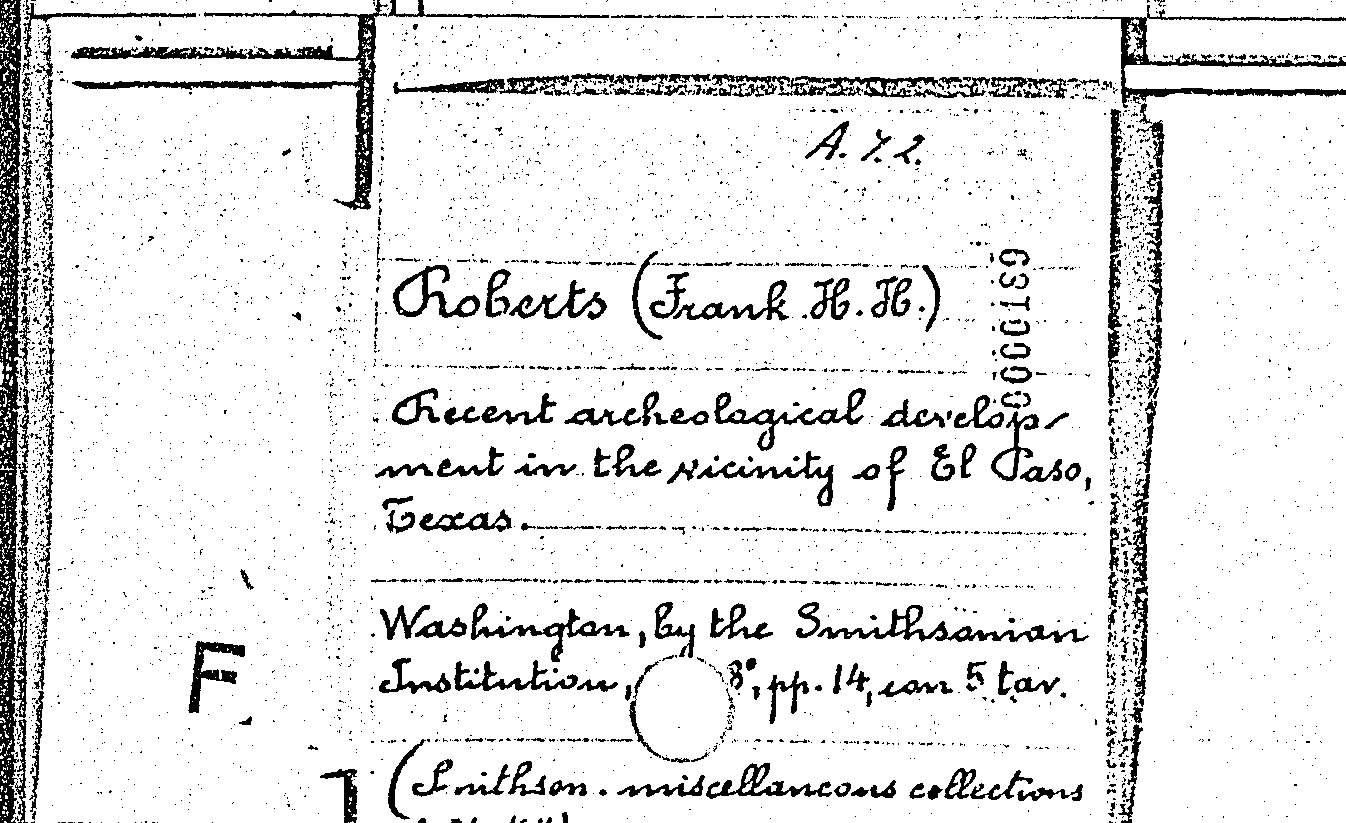 A. 7. 2.
0000189
Roberts (Frank H. H.)
Recent archeological develop-
ment in the vicinity of El Paso,
Texas.
Washington, by the Smithsonian
Institution, 8°, pp. 14, con 5 tav.
F
(Smithson. miscellaneous collections